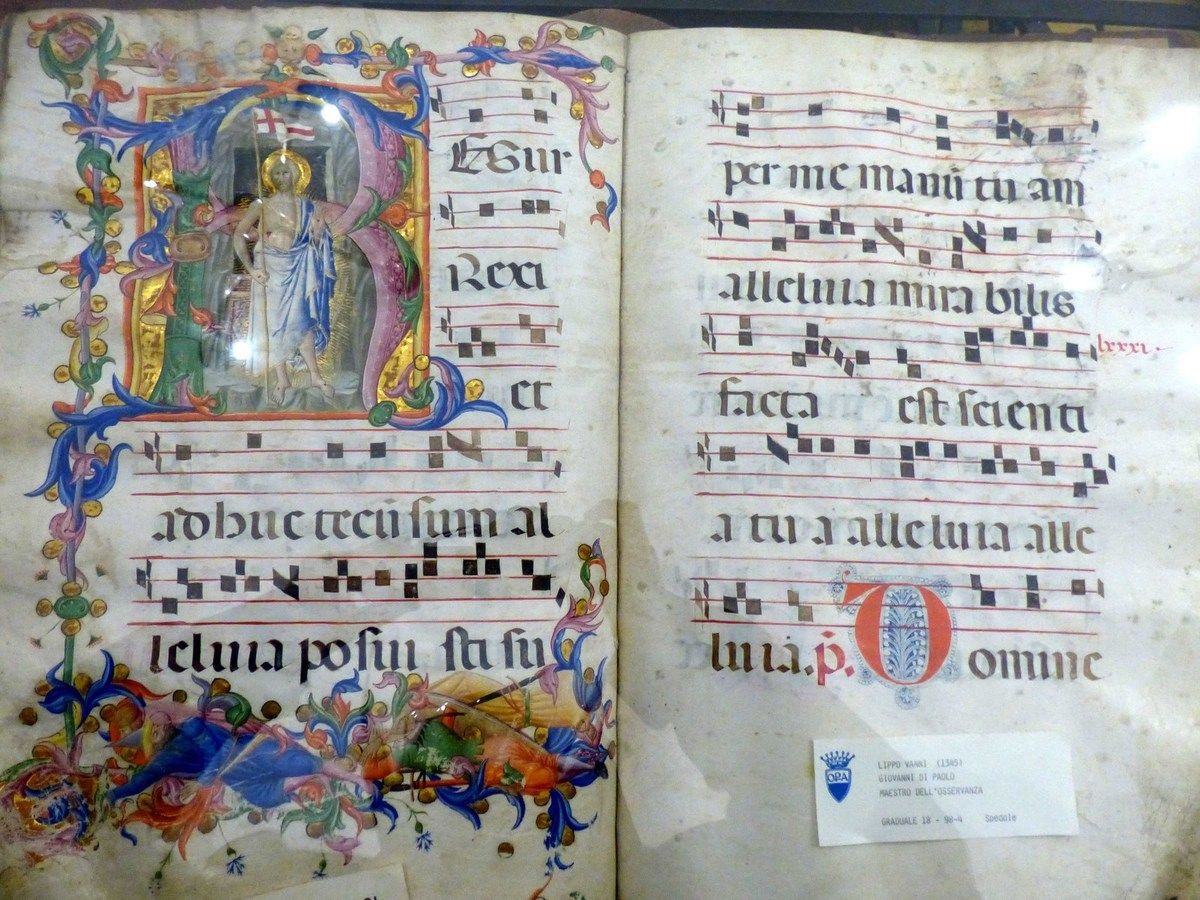 RESur
Rexi
et
adhuc tecū sum al
leluia posui sti su
per me manū tu am
alleluia mira bilis
lxxxi
facta est scienti
a tu a alleluia alle
luia. p. Domine
OPA
LIPPO VANNI (1345)
GIOVANNI DI PAOLO
MAESTRO DELL'OSSERVANZA
GRADUALE 18 - 98-4 Spedale